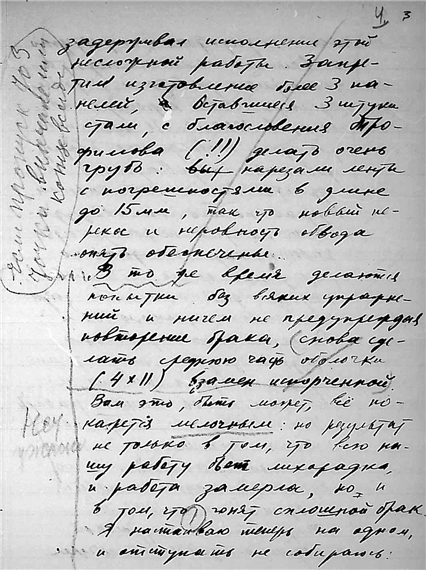 4 3
задерживал исполнение этой
несложной работы. Запре-
тил изготовление более 3 па-
нелей, а оставшиеся 3 штуки
стали, с благословения Тро-
фимова (!!) делать очень
грубо: нарезали ленты
с погрешностями в длине
до 15 мм, так что новый пе-
рекос и неровность обвода
опять обеспечены.
В то же время делаются
попытки без всяких упражне-
ний и ничем не предупреждая
повторение брака, снова сде-
лать среднюю часть оболочки
(4 x 11) взамен испорченной.
Вам это, быть может, всё по-
кажется мелочным: но результат
не только в том, что всю на-
шу работу бьет лихорадка,
и работа замерла, но и
в том, что гонят сплошной брак.
Я настаиваю теперь на одном,
и отступать не собираюсь: